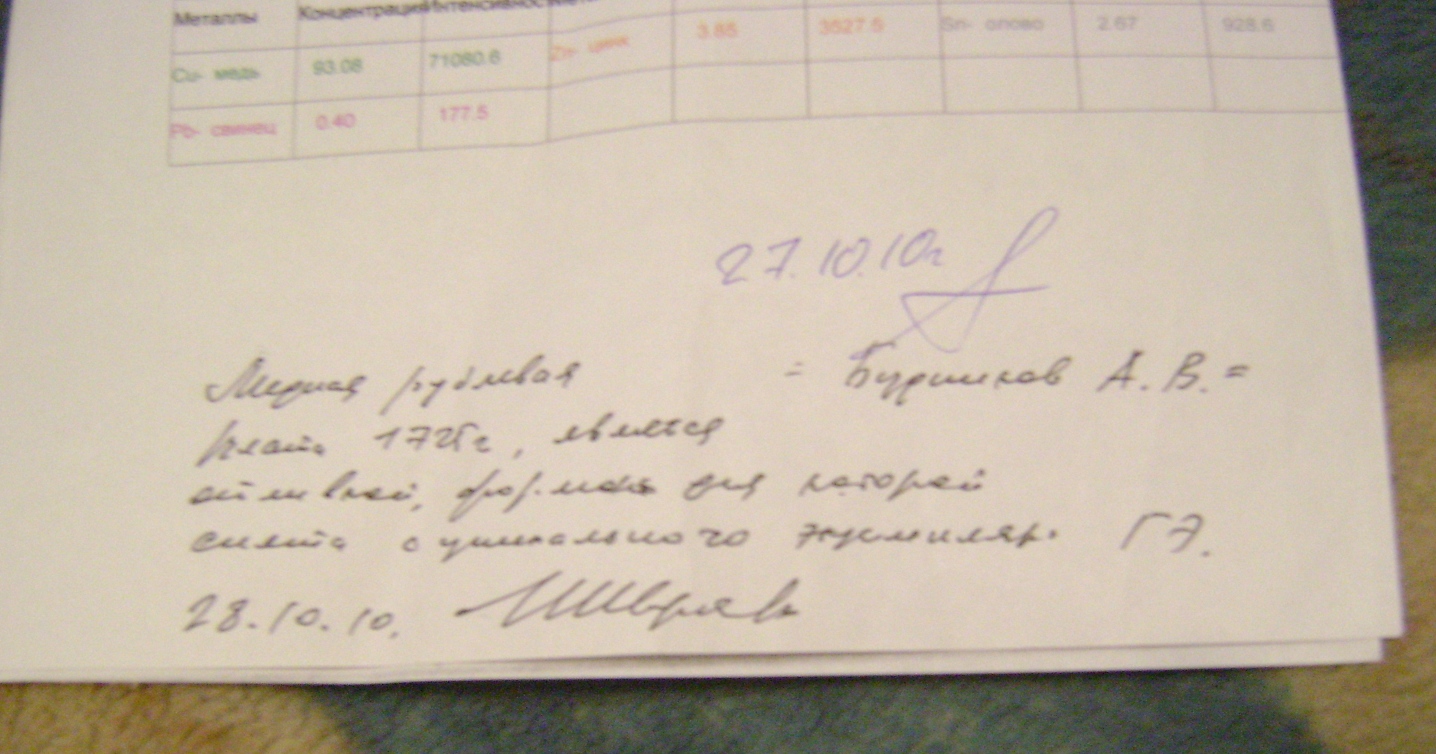 Металлы Концентрация Интенсивность
Cu- медь 93.08 71080.6 Zn- цинк 3.85 3527.5 Sn- олово 2.67 928.6
Pb- свинец 0.40 177.5
27.10.10г
Медная рублевая = А. В. =
плата 1725г, является
отливкой, формовка для которой
снята с уникального экземпляра ГЭ.
28.10.10.